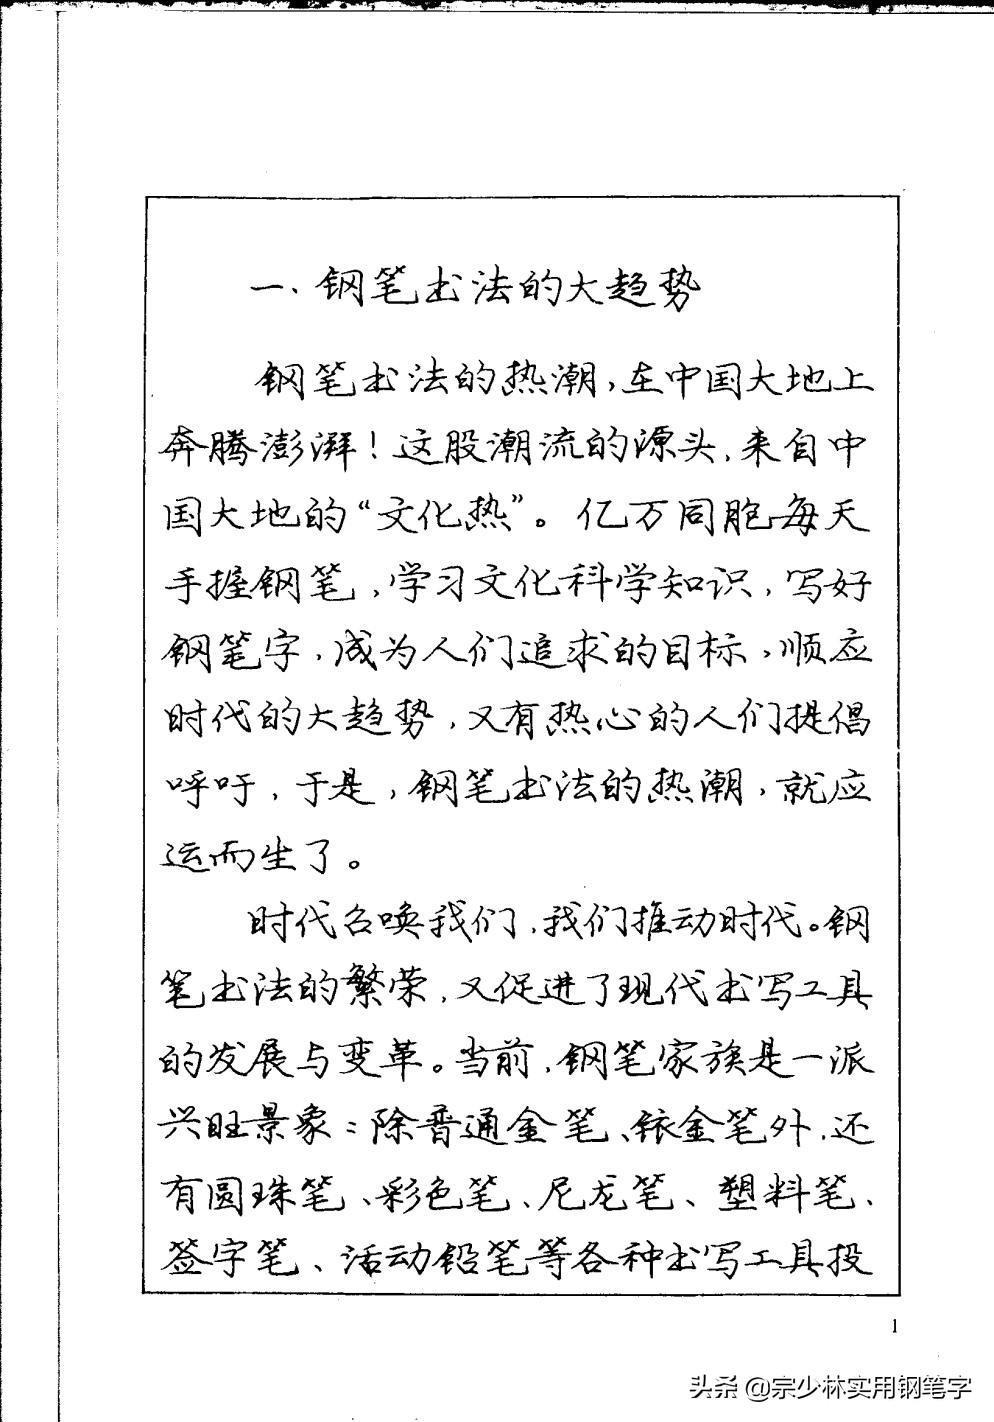 一、钢笔书法的大趋势
钢笔书法的热潮,在中国大地上
奔腾澎湃!这股潮流的源头,来自中
国大地的“文化热”。亿万同胞每天
手握钢笔,学习文化科学知识,写好
钢笔字,成为人们追求的目标,顺应
时代的大趋势,又有热心的人们提倡
呼吁,于是,钢笔书法的热潮,就应
运而生了。
时代召唤我们,我们推动时代。钢
笔书法的繁荣,又促进了现代书写工具
的发展与变革。当前,钢笔家族是一派
兴旺景象:除普通金笔、铱金笔外,还
有圆珠笔、彩色笔、尼龙笔、塑料笔、
签字笔、活动铅笔等各种书写工具投
1
头条 @宗少林实用钢笔字